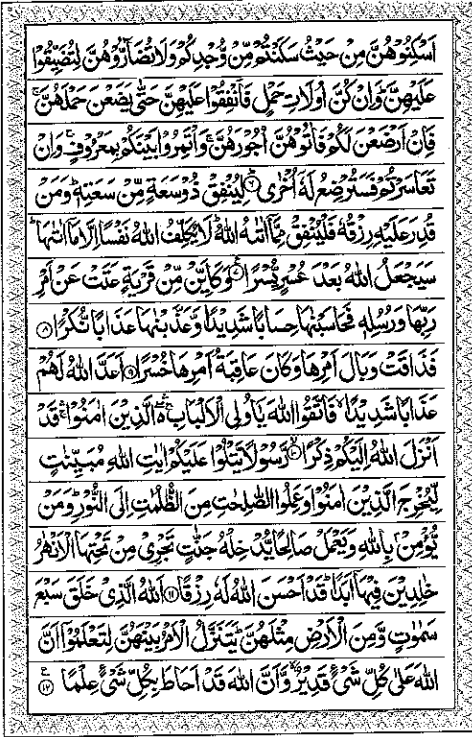 اَسْكِنُوْهُنَّ مِنْ حَيْثُ سَكَنْتُمْ مِّنْ وُّجْدِكُمْ وَلَا تُضَآرُّوْهُنَّ لِتُضَيِّقُوْا
عَلَيْهِنَّ ؕ وَاِنْ كُنَّ اُولَاتِ حَمْلٍ فَاَنْفِقُوْا عَلَيْهِنَّ حَتّٰى يَضَعْنَ حَمْلَهُنَّ ۚ
فَاِنْ اَرْضَعْنَ لَكُمْ فَاٰتُوْهُنَّ اُجُوْرَهُنَّ ۚ وَاْتَمِرُوْا بَيْنَكُمْ بِمَعْرُوْفٍ ۚ وَاِنْ
تَعَاسَرْتُمْ فَسَتُرْضِعُ لَهٗۤ اُخْرٰى ؕ﴿۶﴾ لِيُنْفِقْ ذُوْ سَعَةٍ مِّنْ سَعَتِهٖ ؕ وَمَنْ
قُدِرَ عَلَيْهِ رِزْقُهٗ فَلْيُنْفِقْ مِمَّاۤ اٰتٰىهُ اللّٰهُ ؕ لَا يُكَلِّفُ اللّٰهُ نَفْسًا اِلَّا مَاۤ اٰتٰىهَا ؕ
سَيَجْعَلُ اللّٰهُ بَعْدَ عُسْرٍ يُّسْرًا ﴿۷﴾ وَكَاَيِّنْ مِّنْ قَرْيَةٍ عَتَتْ عَنْ اَمْرِ
رَبِّهَا وَرُسُلِهٖ فَحَاسَبْنٰهَا حِسَابًا شَدِيْدًا ۙ وَّعَذَّبْنٰهَا عَذَابًا نُّكْرًا ﴿۸﴾
فَذَاقَتْ وَبَالَ اَمْرِهَا وَكَانَ عَاقِبَةُ اَمْرِهَا خُسْرًا ﴿۹﴾ اَعَدَّ اللّٰهُ لَهُمْ
عَذَابًا شَدِيْدًا ۙ فَاتَّقُوا اللّٰهَ يٰۤاُولِى الْاَلْبَابِ ۛۚ الَّذِيْنَ اٰمَنُوْا ۛؕ قَدْ
اَنْزَلَ اللّٰهُ اِلَيْكُمْ ذِكْرًا ﴿۱۰﴾ رَّسُوْلًا يَّتْلُوْا عَلَيْكُمْ اٰيٰتِ اللّٰهِ مُبَيِّنٰتٍ
لِّيُخْرِجَ الَّذِيْنَ اٰمَنُوْا وَعَمِلُوا الصّٰلِحٰتِ مِنَ الظُّلُمٰتِ اِلَى النُّوْرِ ؕ وَمَنْ
يُّؤْمِنْۢ بِاللّٰهِ وَيَعْمَلْ صَالِحًا يُّدْخِلْهُ جَنّٰتٍ تَجْرِىْ مِنْ تَحْتِهَا الْاَنْهٰرُ
خٰلِدِيْنَ فِيْهَاۤ اَبَدًا ؕ قَدْ اَحْسَنَ اللّٰهُ لَهٗ رِزْقًا ﴿۱۱﴾ اَللّٰهُ الَّذِىْ خَلَقَ سَبْعَ
سَمٰوٰتٍ وَّمِنَ الْاَرْضِ مِثْلَهُنَّ ؕ يَتَنَزَّلُ الْاَمْرُ بَيْنَهُنَّ لِتَعْلَمُوْۤا اَنَّ
اللّٰهَ عَلٰى كُلِّ شَىْءٍ قَدِيْرٌ ۙ وَّاَنَّ اللّٰهَ قَدْ اَحَاطَ بِكُلِّ شَىْءٍ عِلْمًا ﴿۱۲﴾